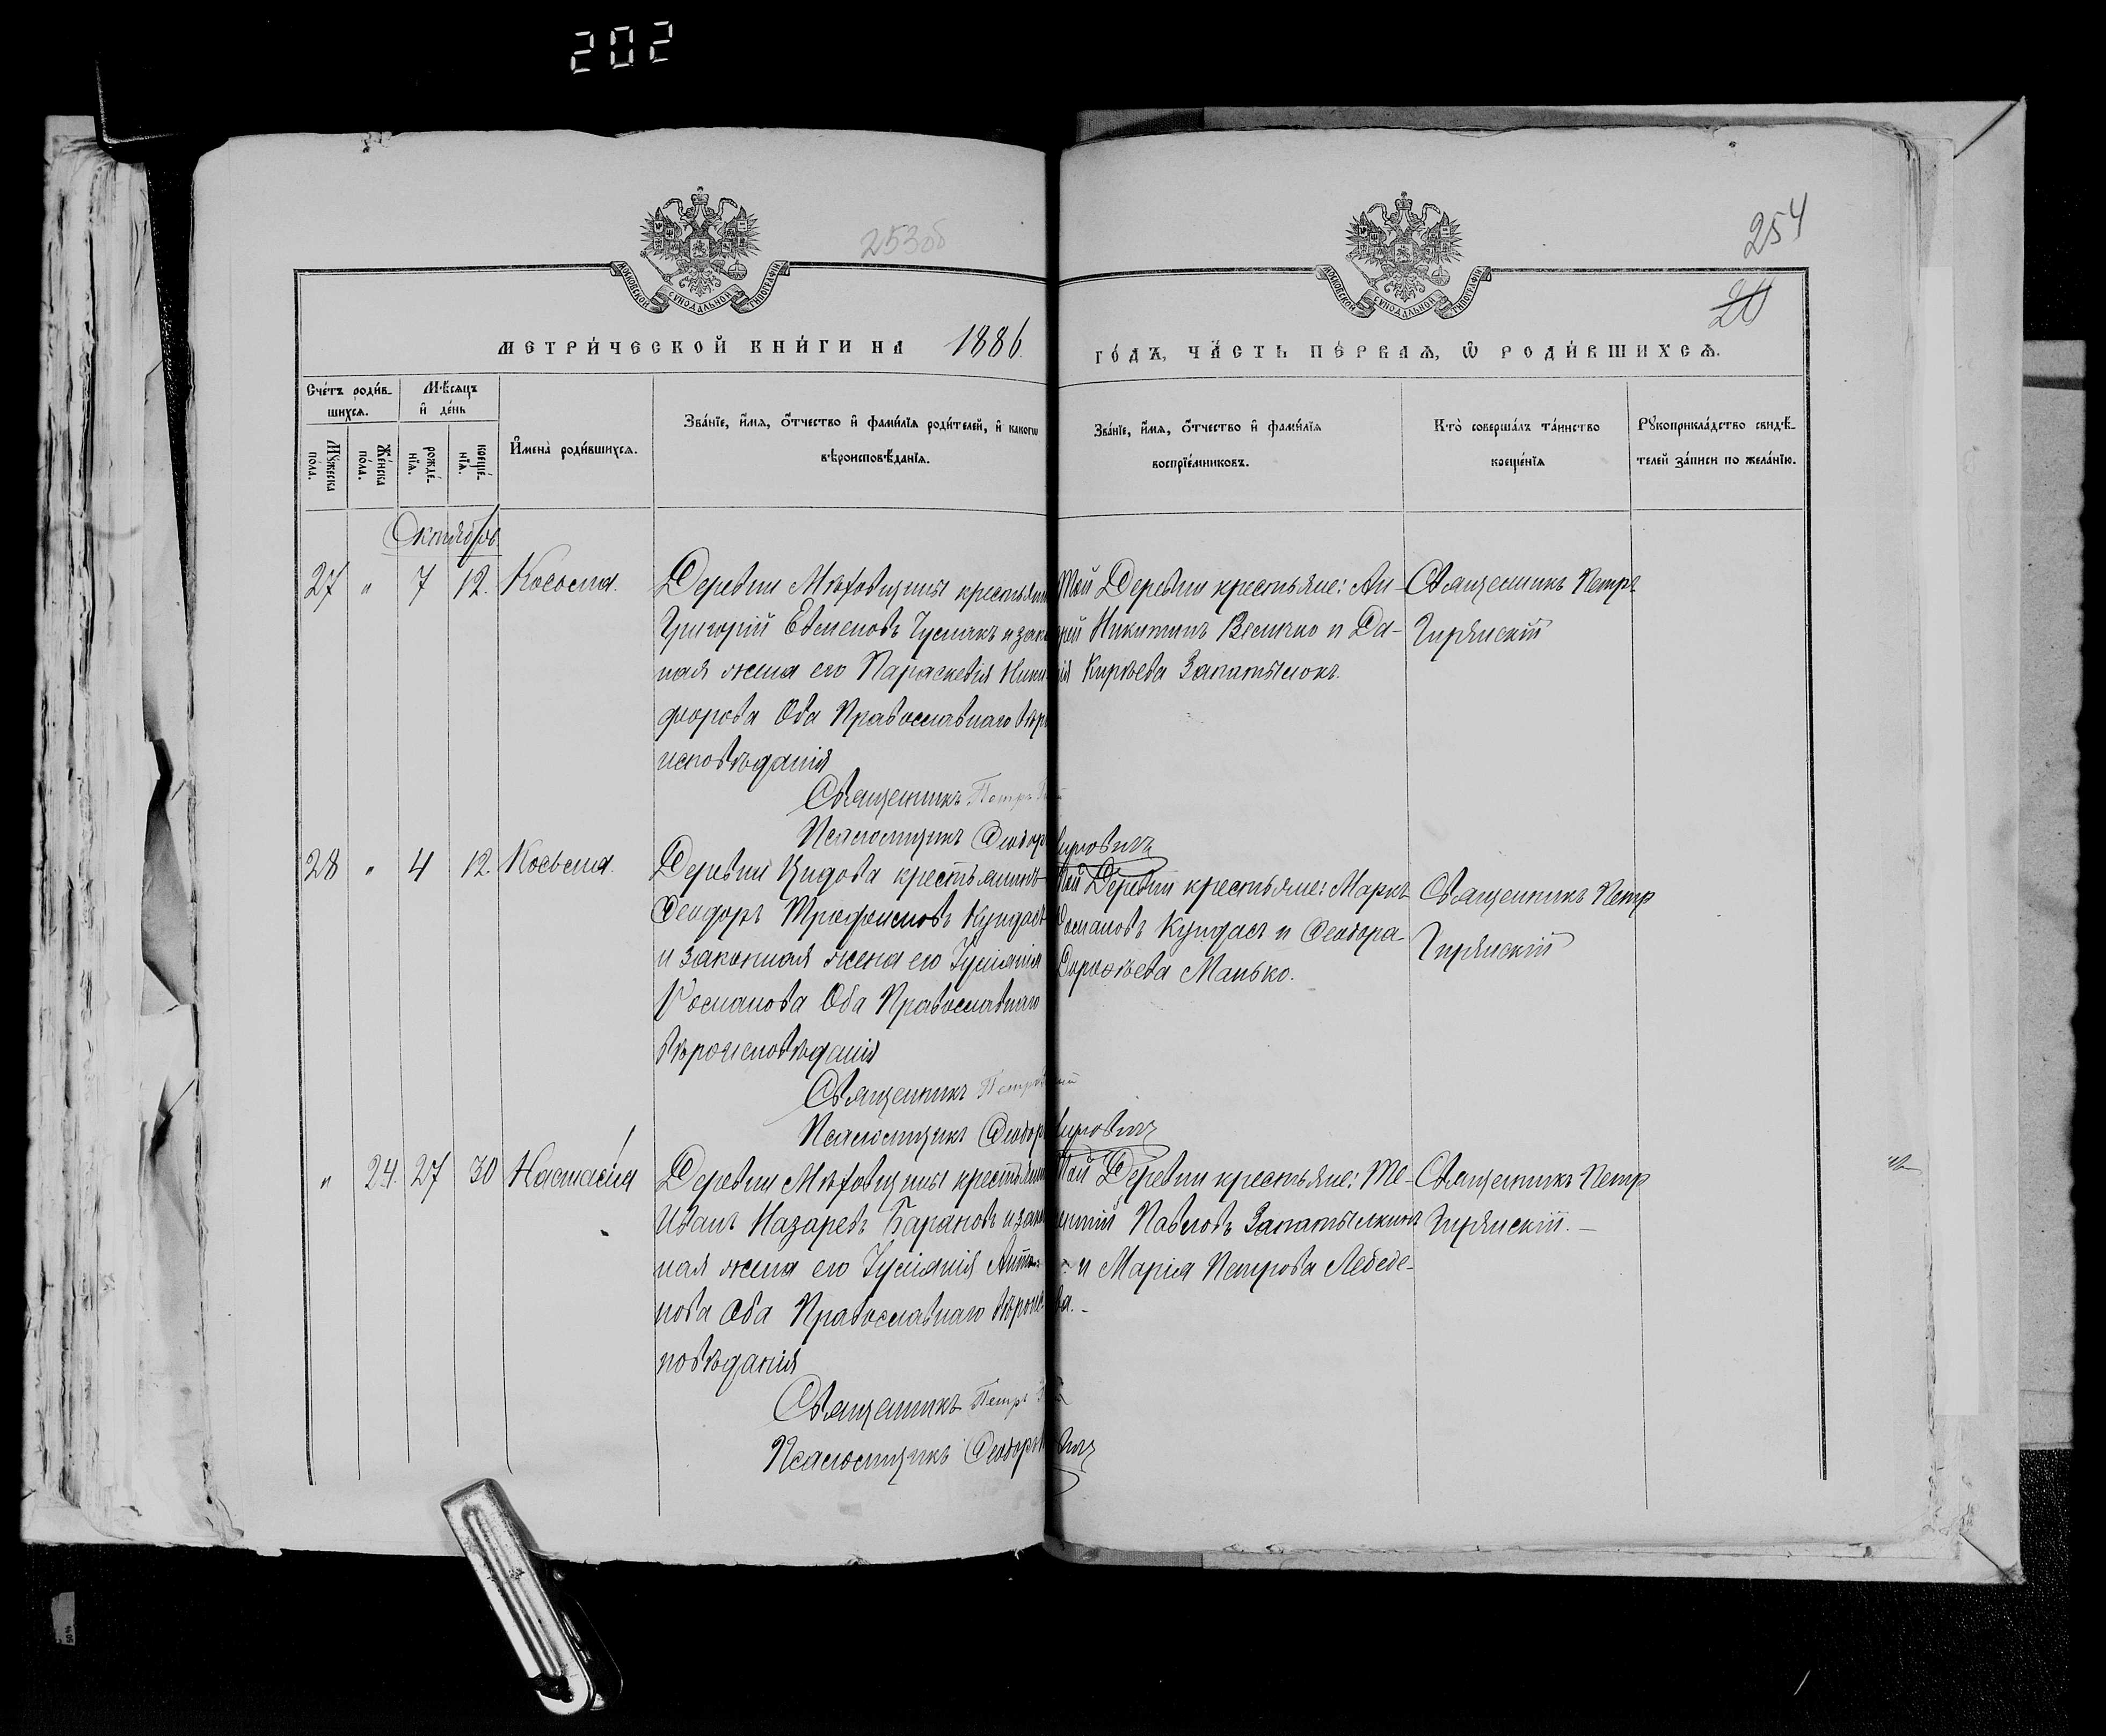 202
253об
254
20
МОСКОВСКОЙ СѴНОДАЛЬНОЙ ТИПОГРАФІИ
МОСКОВСКОЙ СѴНОДАЛЬНОЙ ТИПОГРАФІИ
МЕТРИ́ЧЕСКОЙ КНИ́ГИ НА 1886
ГО́ДЪ, ЧА́СТЬ ПЕ́РВАѦ, Ѽ РОДИ́ВШИХСѦ.
Сче́тъ роди́в-
шихсѧ.
Мѣ́сяцъ
и҆ де́нь
Мꙋ́жеска
по́ла.
Же́нска
по́ла.
рожде́-
нїѧ.
креще́-
нїѧ.
И҆мена̀ роди́вшихсѧ.
Зва́нїе, и҆́мѧ, ѻ҆́тчество и҆ фами́лїѧ роди́телей, и҆ какогѡ
вѣроисповѣ́данїѧ.
Зва́нїе, и҆́мѧ, ѻ҆́тчество и҆ фами́лїѧ
воспрїе́мниковъ.
Кто̀ соверша́лъ та́инство
креще́нїѧ
Рꙋкоприкла́дство свидѣ́-
телей за́писи по жела́нїю.
Октябрь
27 " 7 12. Косьма.
Деревни Мѣховщины крестьянин
Григорій Евменовъ Гуслякъ и зако
ная жена его Параскевія Ники
форова Оба Православнаго вѣро
исповѣданія
Священникъ Петръ
Псаломщикъ Ѳеодоръ
той Деревни крестьяне: Ан-
рей Никитинъ Величко и Да-
рія Кирѣева Запатылокъ.
Священникъ Петръ
Гирянскій
28 " 4 12. Косьма.
Деревни Цидова крестьянинъ
Ѳеодоръ Трифоновъ Кундасъ
и законная жена его Іуліанія
Романова Оба Православнаго
вѣроисповѣданія
Священникъ Петръ
Псаломщикъ Ѳеодоръ
той Деревни крестьяне: Маркъ
Романовъ Кундасъ и Ѳеодора
Дороѳѣева Манько.
Священникъ Петр
Гирянскій
" 24. 27 30 Настасія
Деревни Мѣховщины крестьянин
Иванъ Назаревъ Барановъ и зако
ная жена его Іуліанія Анто-
нова Оба Православнаго вѣроис-
повѣданія
Священникъ Петръ
Псаломщикъ Ѳеодоръ
той Деревни крестьяне: Те-
рентій Павловъ Запатылкинъ
и Марія Петрова Лебеде-
ва.
Священникъ Петр
Гирянскій.